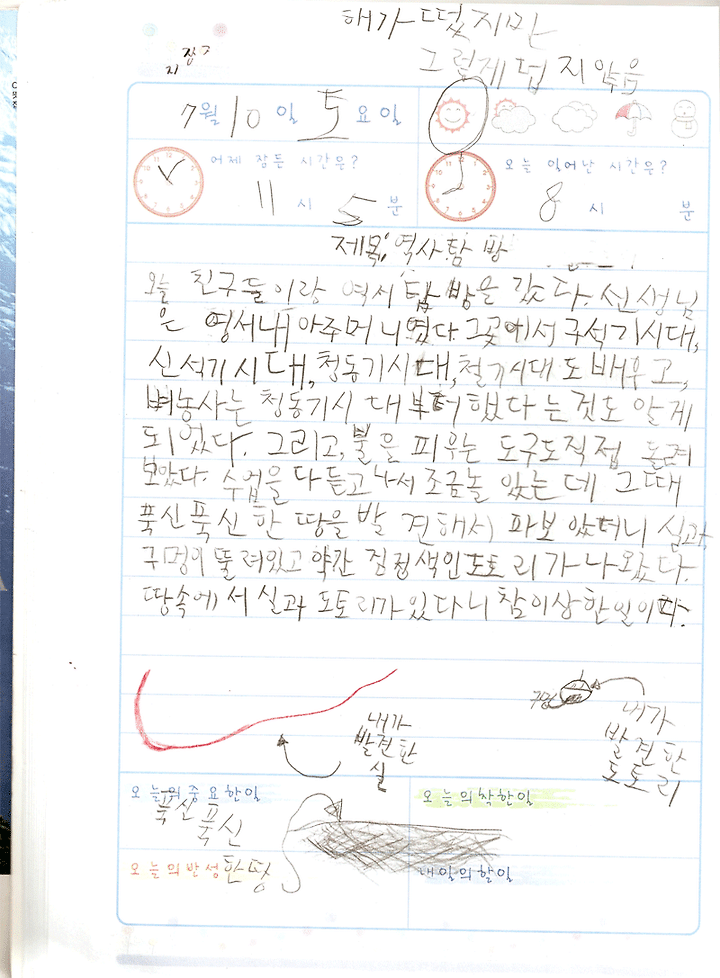 해가 떴지만
그렇게 덥지 않음
7월 10일 토요일
어제 잠든 시간은?
11시 5분
오늘 일어난 시간은?
8시 분
제목: 역사탐방
오늘 친구들이랑 역사탐방을 갔다. 선생님
은 영서네 아주머니였다. 그곳에서 구석기시대,
신석기시대, 청동기시대, 철기시대도 배우고,
벼농사는 청동기시대부터 했다는 것도 알게
되었다. 그리고, 불을 피우는 도구도 직접 돌려
보았다. 수업을 다 듣고 나서 조금 놀았는데 그때
푹신푹신한 땅을 발견해서 파보았더니 실과
구멍이 뚤려있고 약간 검정색인 도토리가 나왔다.
땅속에서 실과 도토리가 있다니 참 이상한 일이다.
내가
발견한
실
구멍
내가
발견한
도토리
오늘의 중요한일
푹신
푹신
한땅
오늘의 착한일
오늘의 반성
내일의 할일